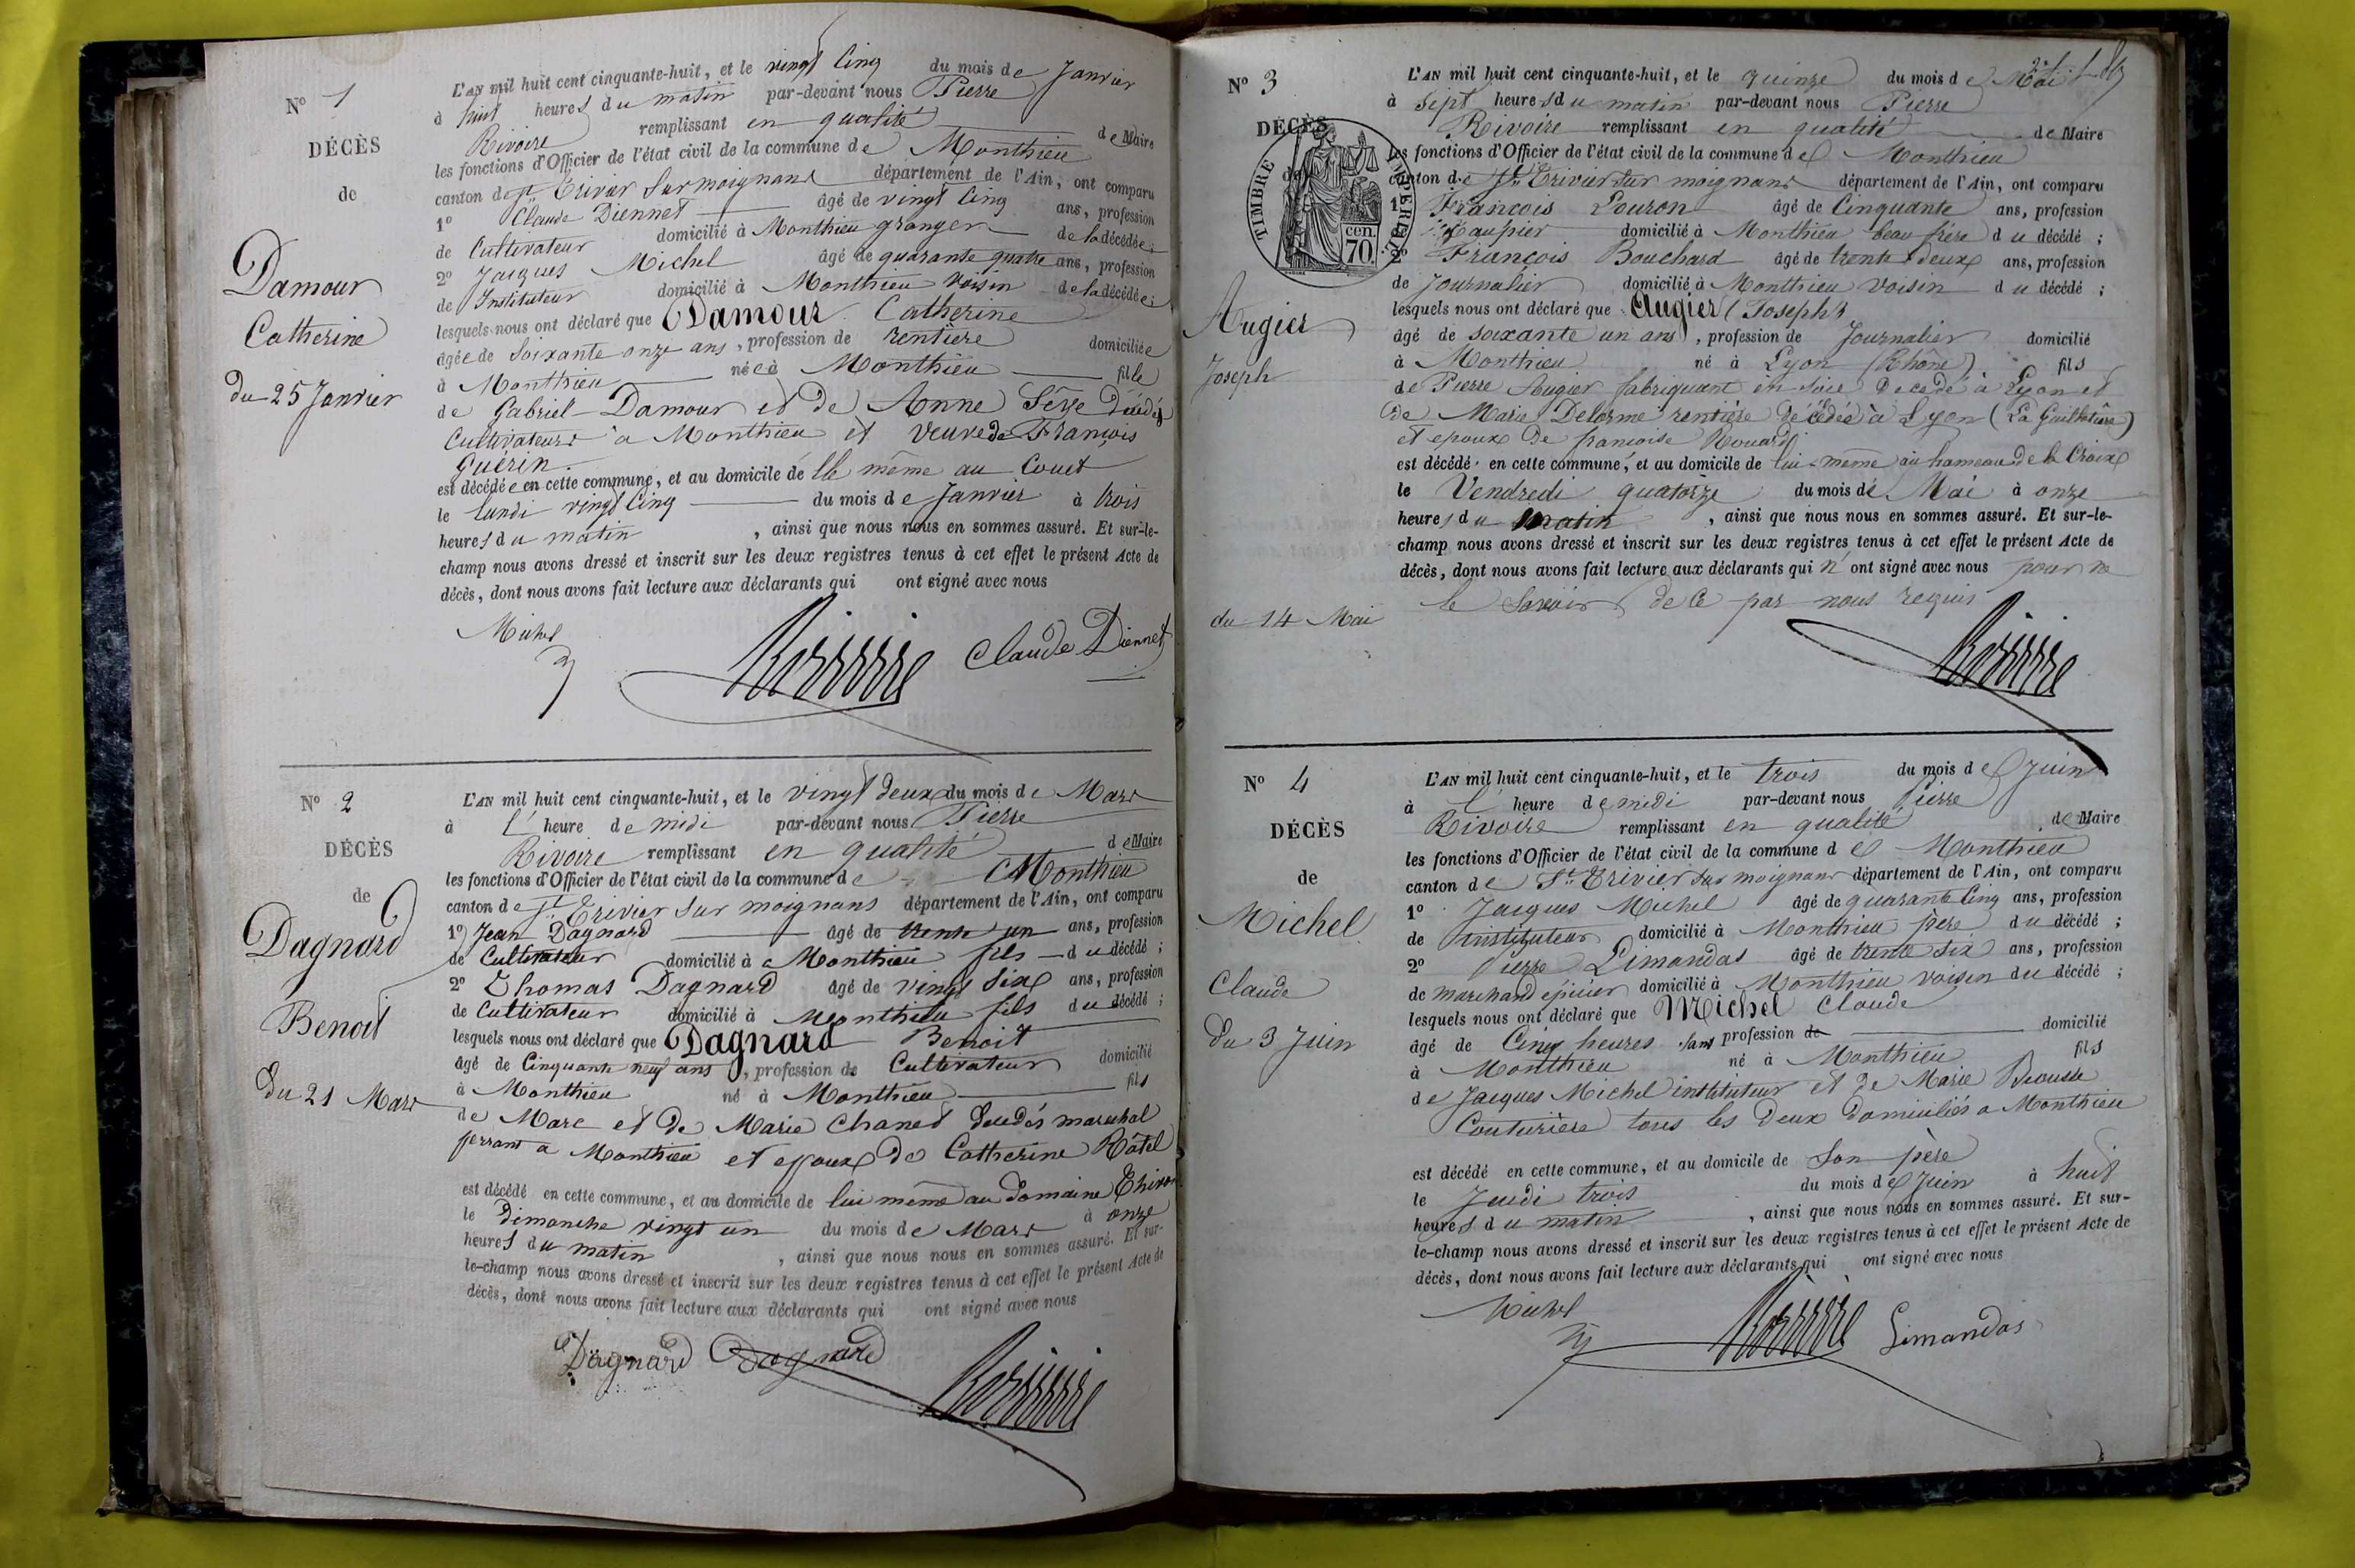 N° 1
DÉCÈS
de
Damour
Catherine
du 25 Janvier
L'AN mil huit cent cinquante-huit, et le vingt Cinq du mois de Janvier
à huit heures du matin par-devant nous Pierre
Rivoire remplissant en qualité de Maire
les fonctions d'Officier de l'état civil de la commune de Monthieu
canton de St Trivier sur moignans département de l'Ain, ont comparu
1° Claude Diennet âgé de vingt Cinq ans, profession
de Cultivateur domicilié à Monthieu granger de la décédée ;
2° Jacques Michel âgé de quarante quatre ans, profession
de Instituteur domicilié à Monthieu voisin de la décédée ;
lesquels nous ont déclaré que Damour Catherine
âgée de Soixante onze ans, profession de rentière domiciliée
à Monthieu née à Monthieu fille
de Gabriel Damour et de Anne Sève décédés
Cultivateurs à Monthieu et Veuve de François
Guérin.
est décédée en cette commune, et au domicile de Elle même au Couet
le Lundi vingt Cinq du mois de Janvier à trois
heures du matin , ainsi que nous nous en sommes assuré. Et sur-le-
champ nous avons dressé et inscrit sur les deux registres tenus à cet effet le présent Acte de
décès, dont nous avons fait lecture aux déclarants qui ont signé avec nous
Michel Rivoire Claude Diennet
N° 2
DÉCÈS
de
Dagnard
Benoit
Du 21 Mars
L'AN mil huit cent cinquante-huit, et le vingt deux du mois de Mars
à l' heure de midi par-devant nous Pierre
Rivoire remplissant en qualité de Maire
les fonctions d'Officier de l'état civil de la commune de Monthieu
canton de St Trivier sur moignans département de l'Ain, ont comparu
1° Jean Dagnard âgé de trente un ans, profession
de Cultivateur domicilié à Monthieu fils du décédé ;
2° Thomas Dagnard âgé de vingt Six ans, profession
de Cultivateur domicilié à Monthieu fils du décédé ;
lesquels nous ont déclaré que Dagnard Benoit
âgé de Cinquante neuf ans, profession de Cultivateur domicilié
à Monthieu né à Monthieu fils
de Marc et de Marie Chanet décédés marechal
ferrant à Monthieu et epoux de Catherine Râtel
est décédé en cette commune, et au domicile de lui même au Domaine
le Dimanche vingt un du mois de Mars à onze
heures du matin , ainsi que nous nous en sommes assuré. Et sur-
le-champ nous avons dressé et inscrit sur les deux registres tenus à cet effet le présent Acte de
décès, dont nous avons fait lecture aux déclarants qui ont signé avec nous
Dagnard Dagnard Rivoire
N° 3
DÉCÈS
de
TIMBRE IMPERIAL
70 cen.
Augier
Joseph
du 14 Mai
L'AN mil huit cent cinquante-huit, et le quinze du mois de Mai
à Sept heures du matin par-devant nous Pierre
Rivoire remplissant en qualité de Maire
les fonctions d'Officier de l'état civil de la commune de Monthieu
canton de St Trivier sur moignans département de l'Ain, ont comparu
1° François Louron âgé de Cinquante ans, profession
domicilié à Monthieu beau frère du décédé ;
2° François Bouchard âgé de trente deux ans, profession
de Journalier domicilié à Monthieu voisin du décédé ;
lesquels nous ont déclaré que Augier (Joseph)
âgé de soixante un ans, profession de Journalier domicilié
à Monthieu né à Lyon (Rhône) fils
de Pierre Augier fabriquant en soie Décédé à Lyon et
de Marie Delorme rentière Décédée à Lyon (La Guillotière)
et epoux De françoise Nouard
est décédé en cette commune, et au domicile de lui-même au hameau de la Croix
le Vendredi quatorze du mois de Mai à onze
heures du matin , ainsi que nous nous en sommes assuré. Et sur-le-
champ nous avons dressé et inscrit sur les deux registres tenus à cet effet le présent Acte de
décès, dont nous avons fait lecture aux déclarants qui n' ont signé avec nous pour ne
le Savoir de Ce par nous requis
Rivoire
N° 4
DÉCÈS
de
Michel
Claude
Du 3 Juin
L'AN mil huit cent cinquante-huit, et le trois du mois de Juin
à l' heure de midi par-devant nous Pierre
Rivoire remplissant en qualité de Maire
les fonctions d'Officier de l'état civil de la commune de Monthieu
canton de St Trivier sur moignans département de l'Ain, ont comparu
1° Jacques Michel âgé de quarante Cinq ans, profession
de instituteur domicilié à Monthieu père du décédé ;
2° Pierre Limandas âgé de trente six ans, profession
de marchand épicier domicilié à Monthieu voisin du décédé ;
lesquels nous ont déclaré que Michel Claude
âgé de Cinq heures sans profession de domicilié
à Monthieu né à Monthieu fils
de Jacques Michel instituteur et de Marie
Couturière tous les Deux Domiciliés a Monthieu
est décédé en cette commune, et au domicile de Son père
le Jeudi trois du mois de Juin à huit
heures du matin , ainsi que nous nous en sommes assuré. Et sur-
le-champ nous avons dressé et inscrit sur les deux registres tenus à cet effet le présent Acte de
décès, dont nous avons fait lecture aux déclarants qui ont signé avec nous
Michel Rivoire Limandas